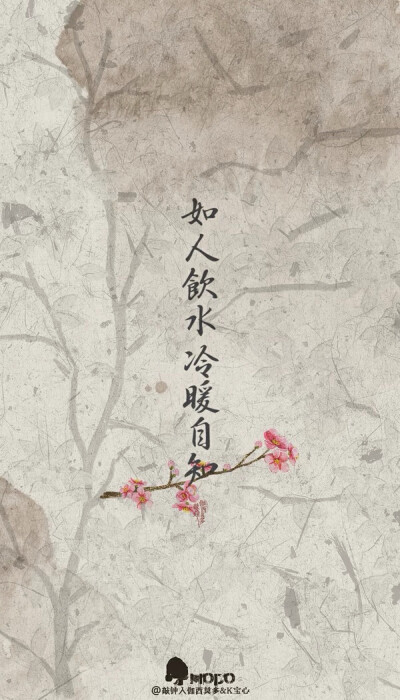 如人飲水冷暖自知
MOCO
@敲钟人伽西莫多&K宝心